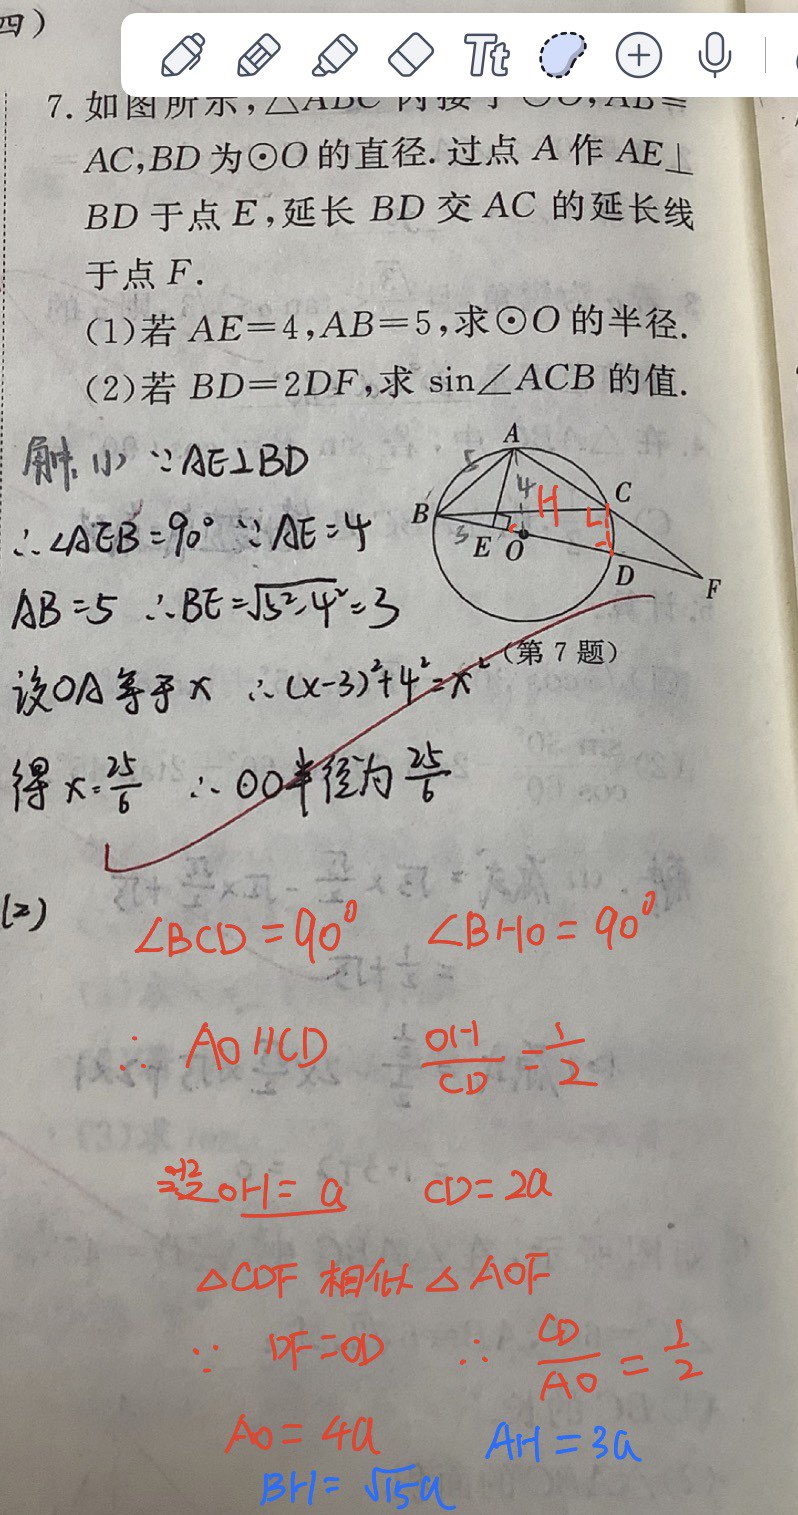 四)
Tt
7. 如图所示,△ABC 内接于⊙O,AB=
AC,BD为⊙O的直径. 过点 A 作 AE⊥
BD 于点 E,延长 BD 交 AC 的延长线
于点 F.
(1)若 AE=4,AB=5,求⊙O 的半径.
(2)若 BD=2DF,求 sin∠ACB 的值.
A
5
4
H
C
B
3
E
O
D
F
(第 7 题)
解: (1) ∵AE⊥BD
∴∠AEB=90° ∵AE=4
AB=5 ∴BE=√5²-4²=3
设OA等于x ∴(x-3)²+4²=x²
得x=25/6 ∴⊙O半径为25/6
(2)
∠BCD=90° ∠BHO=90°
∴ AO∥CD OH/CD=1/2
OH=a CD=2a
△CDF 相似△AOF
∵ DF=OD ∴ CD/AO=1/2
AO=4a AH=3a
BH=√15a